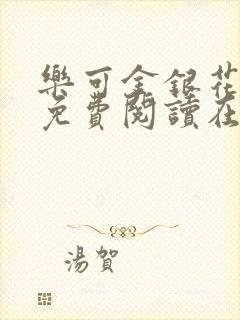 樂可金銀花
免費閱讀在
湯賀